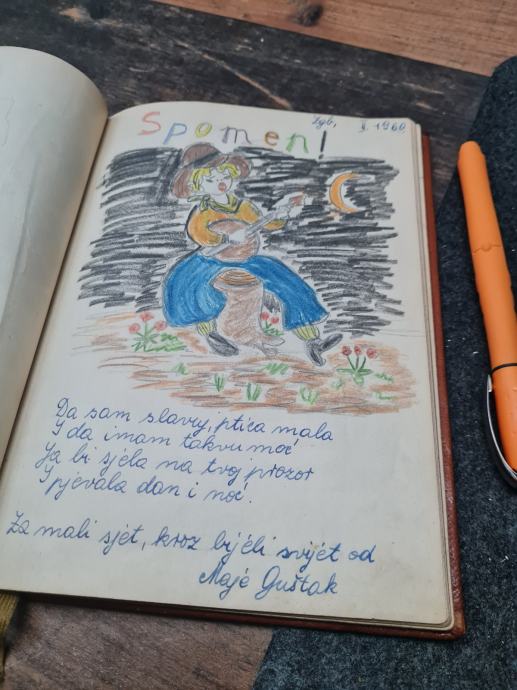 Zgb, II. 1960
Spomen!
Da sam slavuj, ptica mala
I da imam takvu moć
Ja bi sjela na tvoj prozor
I pjevala dan i noć.
Za mali sjét, kroz bijéli svijét od
Maje Guštak